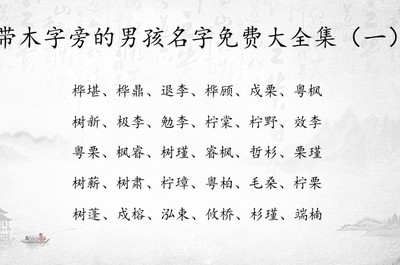 带木字旁的男孩名字免费大全集（一）
桦堪、桦鼎、退李、桦顾、戍栗、粤枫
树新、极李、勉李、柠棠、柠野、效李
粤栗、枫睿、树瑾、睿枫、哲杉、栗瑾
树薪、树肃、柠璋、粤柏、毛桑、柠栗
树蓬、戍榕、泓束、攸桥、杉瑾、端楠